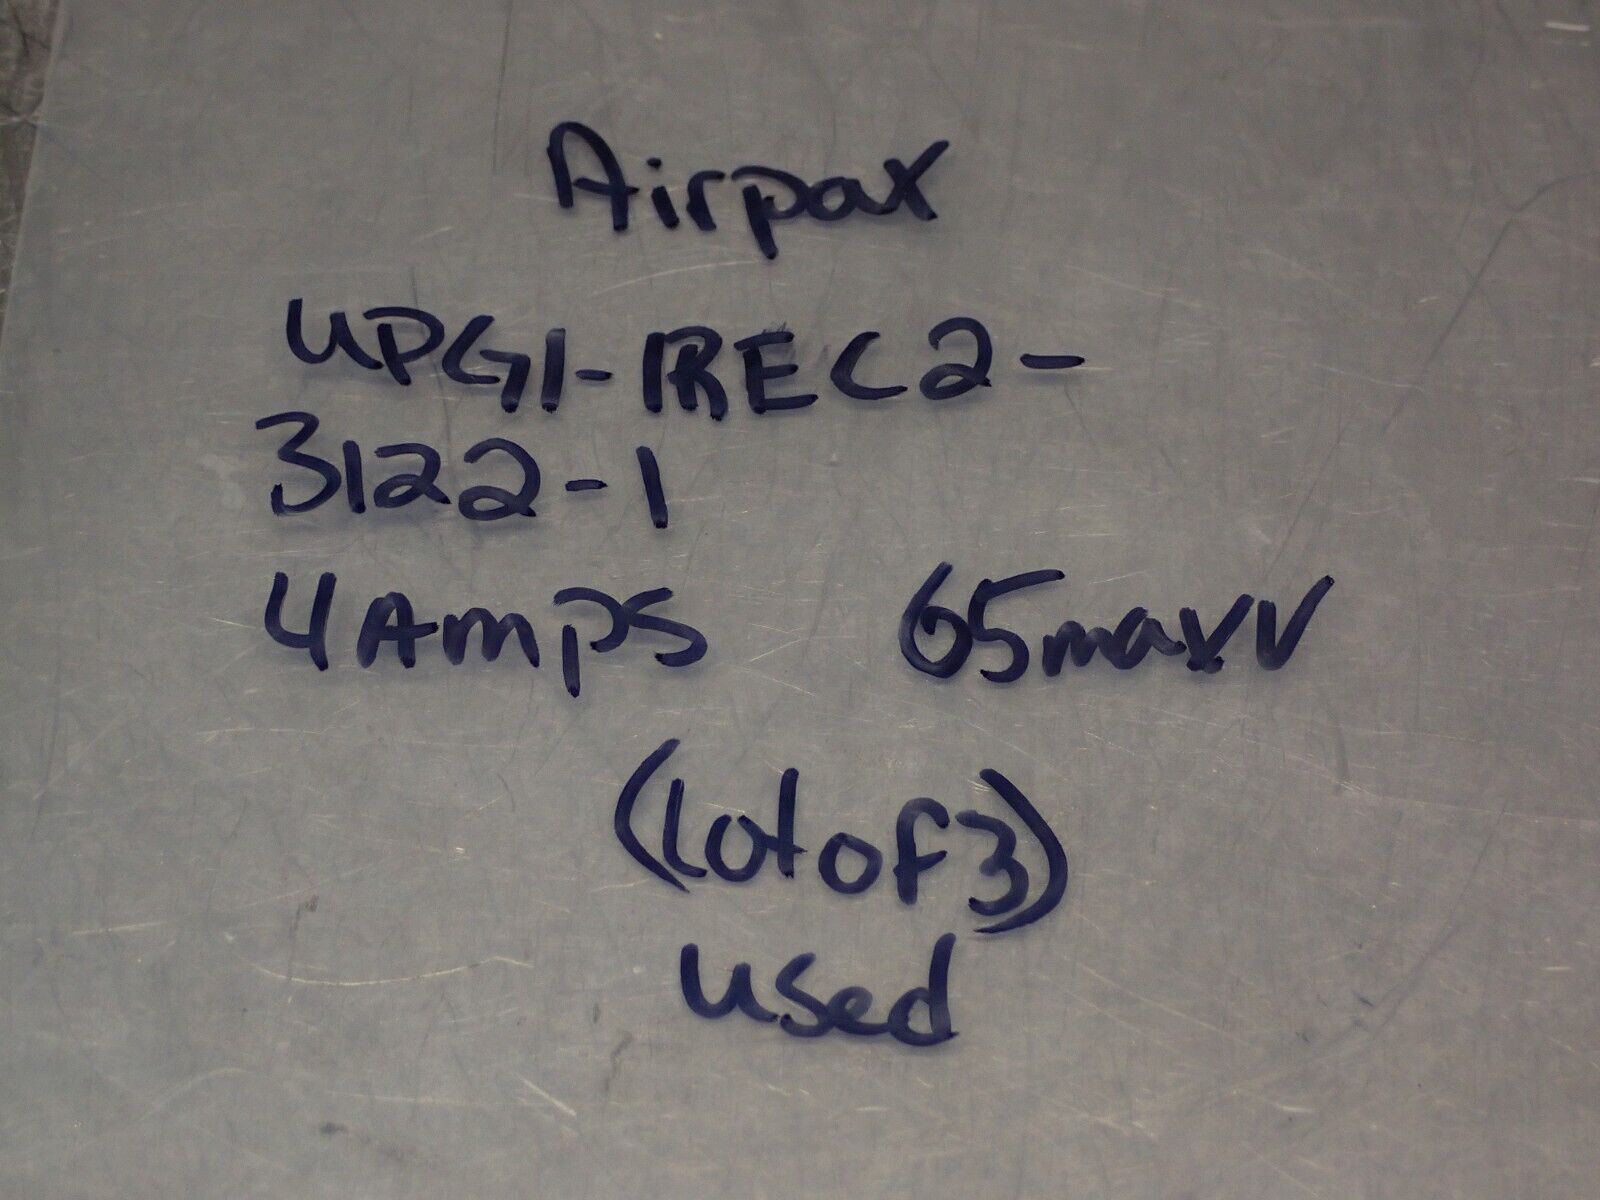 Airpax
UPG1-RREC2-
3122-1
4 Amps 65maxV
(lot of 3)
used